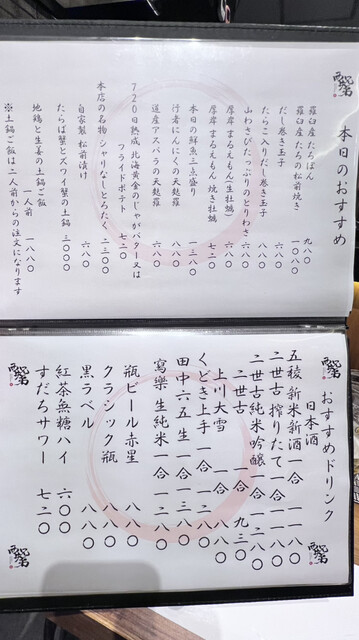 本日のおすすめ
羅臼産 たちぽん 九八〇
羅臼産 たちの松前焼き 一〇八〇
だし巻き玉子 六八〇
たらこ入りだし巻き玉子 七八〇
山わさびたっぷりのとりわさ 六八〇
厚岸 まるえもん(生牡蠣) 六八〇
厚岸 まるえもん 焼き牡蠣 七二〇
本日の鮮魚三点盛り 一三八〇
行者にんにくの天麩羅 八八〇
道産アスパラの天麩羅 六八〇
720日熟成 北海黄金のじゃがバター又は
フライドポテト 七二〇
本店の名物 シャリなしとろたく 二三〇〇
自家製 松前漬け 六八〇
たらば蟹とズワイ蟹の土鍋 三〇〇〇
地鶏と生姜の土鍋ご飯
一人前 一八八〇
※土鍋ご飯は二人前からの注文になります
おすすめドリンク
日本酒
五稜 新米新酒 一合 一一八〇
二世古 搾りたて 一合 一一八〇
二世古純米吟醸 一合 一二八〇
二世古 一合 九三〇
上川大雪 一合 八八〇
くどき上手 一合 一二八〇
田中六五 生 一合 一三八〇
寫樂 生純米 一合 一二八〇
瓶ビール赤星 八八〇
クラシック瓶 八八〇
黒ラベル 八八〇
紅茶無糖ハイ 六〇〇
すだちサワー 七二〇